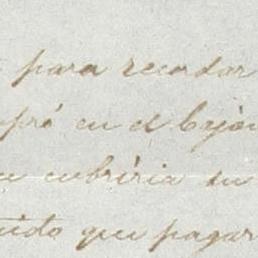 para recordar
pró en el bajo
cubriria su
tido que pagar